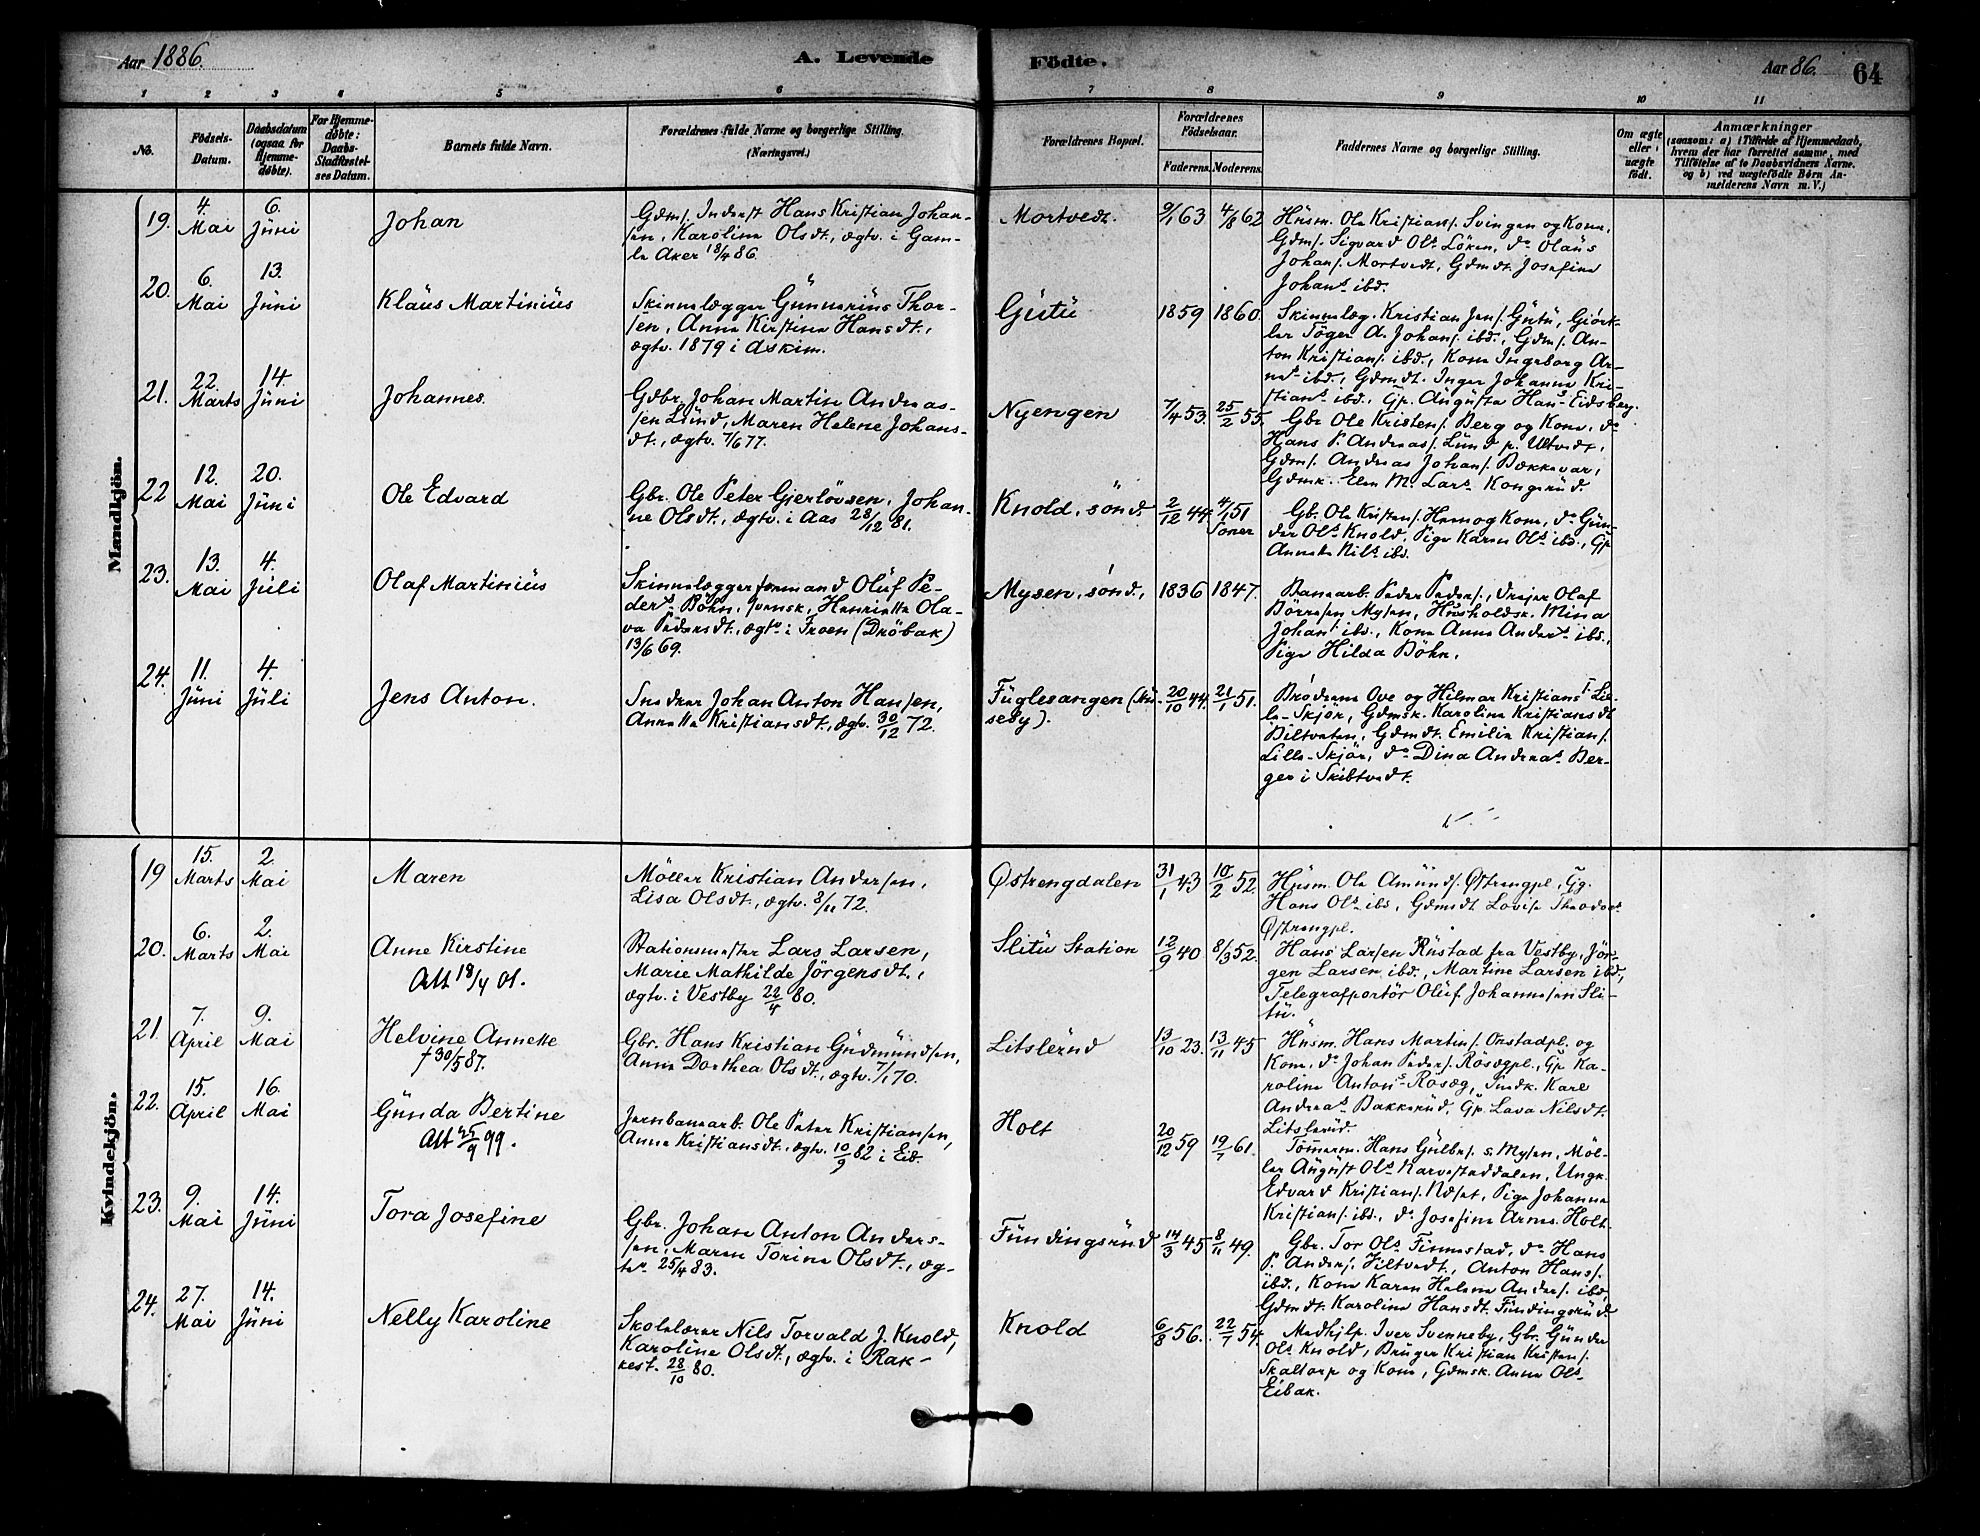 Aar 1886.
A. Levende
Födte.
Aar 86.
64
1 2 3 4 5 6 7 8 9 10 11
No.
Födsels-
Datum.
Daabsdatum
(ogsaa for
Hjemme-
döbte).
For Hjemme-
döbte:
Daabs-
Stadfæstel-
ses Datum.
Barnets fulde Navn.
Forældrenes fulde Navne og borgerlige Stilling.
(Næringsvei.)
Forældrenes Bopæl.
Forældrenes
Födselsaar.
Faderens. Moderens.
Faddernes Navne og borgerlige Stilling.
Om ægte
eller
uægte
födt.
Anmærkninger
(saasom: a) i Tilfælde af Hjemmedaab,
hvem der har forrettet samme, med
Tilföielse af to Daabsvidners Navne.
og b) ved uægtefödte Börn An-
melderens Navn m. V.)
Mandkjön.
19. 4. Mai
6. Juni
Johan
Gdm/. Inderst Hans Kristian Johan-
sen, Karoline Olsdt., ægtv. i Gam-
le Aker 18/4 86.
Mortvedt.
9/1 63
4/8 62
Husm. Ole Kristians. Svingen og Kone,
Gdms. Sigvard Ols. Löken, do Olaus
Johans. Mortvedt, Gdmdt. Josefine
Johans ibd.
20. 6. Mai
13. Juni
Klaus Martinius
Skinnelægger Gunnerius Thor-
sen, Anne Kirstine Hansdt.,
ægtv. 1879 i Askim.
Gutu
1859
1860.
Skinnelæg. Kristian Jens. Gutu, Giört-
ler Töger A. Johans. ibd., Gdms. An-
ton Kristians. ibd., Kone Ingeborg Ar-
nes ibd., Gdmdt. Inger Johanne Kri-
stians ibd., Gp. Augusta Hans Eidsberg.
21. 22. Marts
14. Juni
Johannes.
Gdbr. Johan Martin Andreas-
sen Lund, Maren Helene Johans-
dt., ægtv. 7/6 77.
Nyengen
7/4 53.
25/2 55.
Gbr. Ole Kristens. Berg og Kone, do
Hans P. Andreas. Lund p. Ultvedt,
Gdms. Andreas Johans. Bækkevar,
Gdmk. Elen M. Lars. Kongsrud.
22 12. Mai
20. Juni
Ole Edvard
Gbr. Ole Peter Gjerlövsen, Johan-
ne Olsdt., ægtv. i Aas 28/12 81.
Knold, sönd.
2/12 44.
4/1 51
Soner
Gb. Ole Kristens. Hem og Kone, do Gun-
der Ols. Knold, Pige Karen Ols. ibd., Gp
Annette Nils ibd.
23. 13. Mai
4. Juli
Olaf Martinius
Skinnelæggerformand Oluf Pe-
ders. Böhn, svensk, Henriette Ola-
va Pedersdt., ægtv. i Froen (Dröbak)
13/6 69.
Mysen, sönd.,
1836
1847.
Banearb. Peder Peders., Drejer Olaf
Börresen Mysen, Husholdsk. Mina
Johans. ibd., Kone Anne Anders. ibd.,
Pige Hilda Böhn.
24. 11. Juni
4. Juli
Jens Anton.
Snedker Johan Anton Hansen,
Annette Kristiansdt., ægtv. 30/12 72.
Fuglesangen (Hu-
seby).
20/10 44.
21/1 51.
Brödrene Ove og Hilmar Kristians. Lil-
le-Skjör, Gdmsk. Karoline Kristiansdt
Biltveten, Gdmdt. Emilie Kristians.
Lille-Skjör, do Dina Andreas. Ber-
ger i Skibtvedt.
Kvindekjön.
19 15. Marts
2. Mai
Maren
Möller Kristian Andersen,
Lisa Olsdt., ægtv. 8/11 72.
Østrengdalen
31/1 43
10/2 52.
Husm. Ole Amunds. Østrengpl., Gg.
Hans Ols ibd., Gdmsdt. Lovise Theodors
Østrengpl.
20. 6. Marts
2. Mai
Anne Kirstine
Att 18/4 01.
Stationsmester Lars Larsen,
Marie Mathilde Jörgensdt.,
ægtv. i Vestby 22/4 80.
Slitu Station
12/9 40
8/3 52.
Hans Larsen Rustad fra Vestby, Jör-
gen Larsen ibd., Martine Larsen ibd.,
Telegrafportör Oluf Johannesen Sli-
tu.
21. 7. April
9. Mai
Helvine Annette
† 30/5 87.
Gbr. Hans Kristian Gudmundsen,
Anne Dorthea Olsdt., ægtv. 7/1 70.
Litslerud
13/10 23.
13/11 45
Husm. Hans Martins. Onstadpl. og
Kone, do Johan Peders. Rösægpl., Gp Ka-
roline Antons Rösæg, Smdk. Karl
Andreas Bakkerud, Gp. Lava Nilsdt.
Litslerud.
22. 15. April
16. Mai
Gunda Bertine
Att 25/9 99.
Jernbanearb. Ole Peter Kristiansen,
Anne Kristiansdt., ægtv. 10/9 82 i Eid.
Holt
20/12 59
19/7 61.
Tömmerm. Hans Gulbrs. s. Mysen, Möl-
ler August Ols. Karvestaddalen, Ungk.
Edvard Kristians. Næset, Pige Johanne
Kristians. ibd., do Josefine Arnes. Holt.
23. 9. Mai
14. Juni
Tora Josefine
Gbr. Johan Anton Anders-
sen, Maren Torine Olsdt., æg-
tev. 25/4 83.
Fundingsrud
14/3 45
8/11 49.
Gbr. Tor Ols. Finnestad, do Hans
P. Anders. Hiltvedt, Anton Hans.
ibd., Kone Karen Helene Anders. ibd,
Gdmdt. Karoline Hansdt. Fundingsrud
24. 27. Mai
14. Juni
Nelly Karoline
Skolelærer Nils Torvald J. Knold,
Karoline Olsdt., ægtv. i Rak-
kest. 28/10 80.
Knold
6/8 56.
22/7 54.
Medhjlp. Iver Svenneby, Gbr. Gunder
Ols. Knold, Bruger Kristian Kristens.
Skaltorp og Kone, Gdmsk. Anne Ols
Eibak.